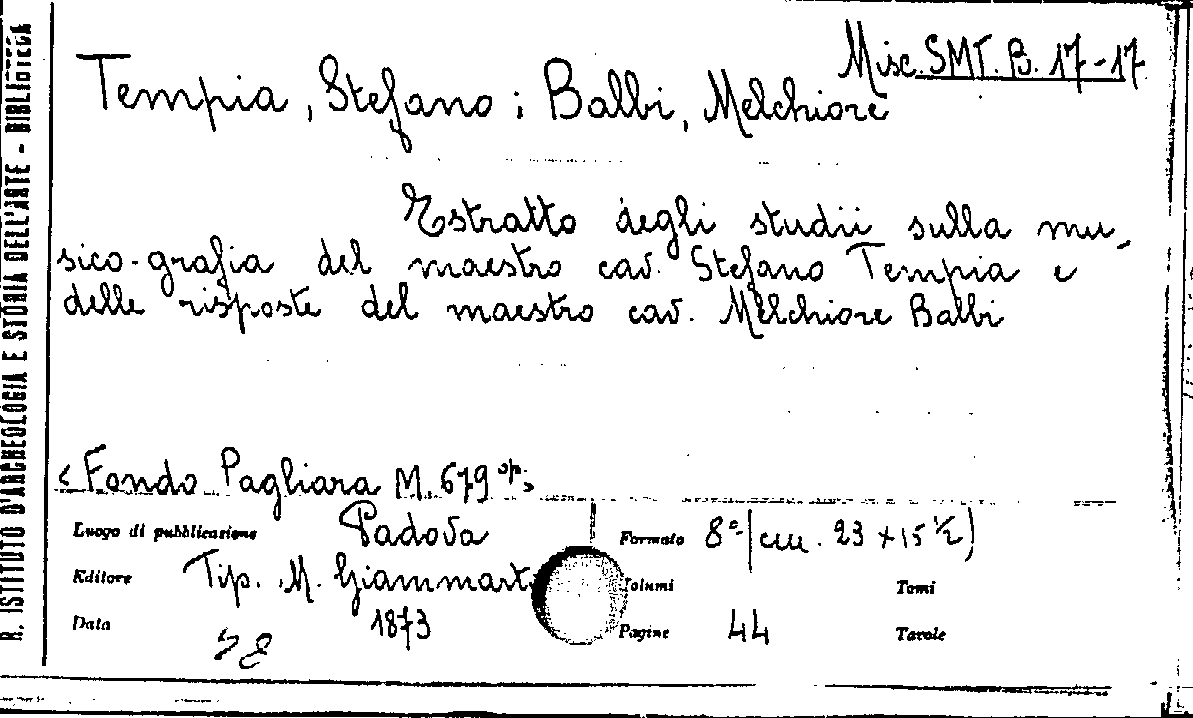 Misc. SMT. B. 17-17
Tempia, Stefano; Balbi, Melchiore
Estratto degli studii sulla mu-
sico-grafia del maestro cav. Stefano Tempia e
delle risposte del maestro cav. Melchiore Balbi
< Fondo Pagliara M. 679 op >
Luogo di pubblicazione Padova
Formato 8° (cm. 23 x 15 ½)
Editore Tip. M. Giammart
Volumi
Tomi
Data 1873
Pagine 44
Tavole
R. ISTITUTO D'ARCHEOLOGIA E STORIA DELL'ARTE - BIBLIOTECA